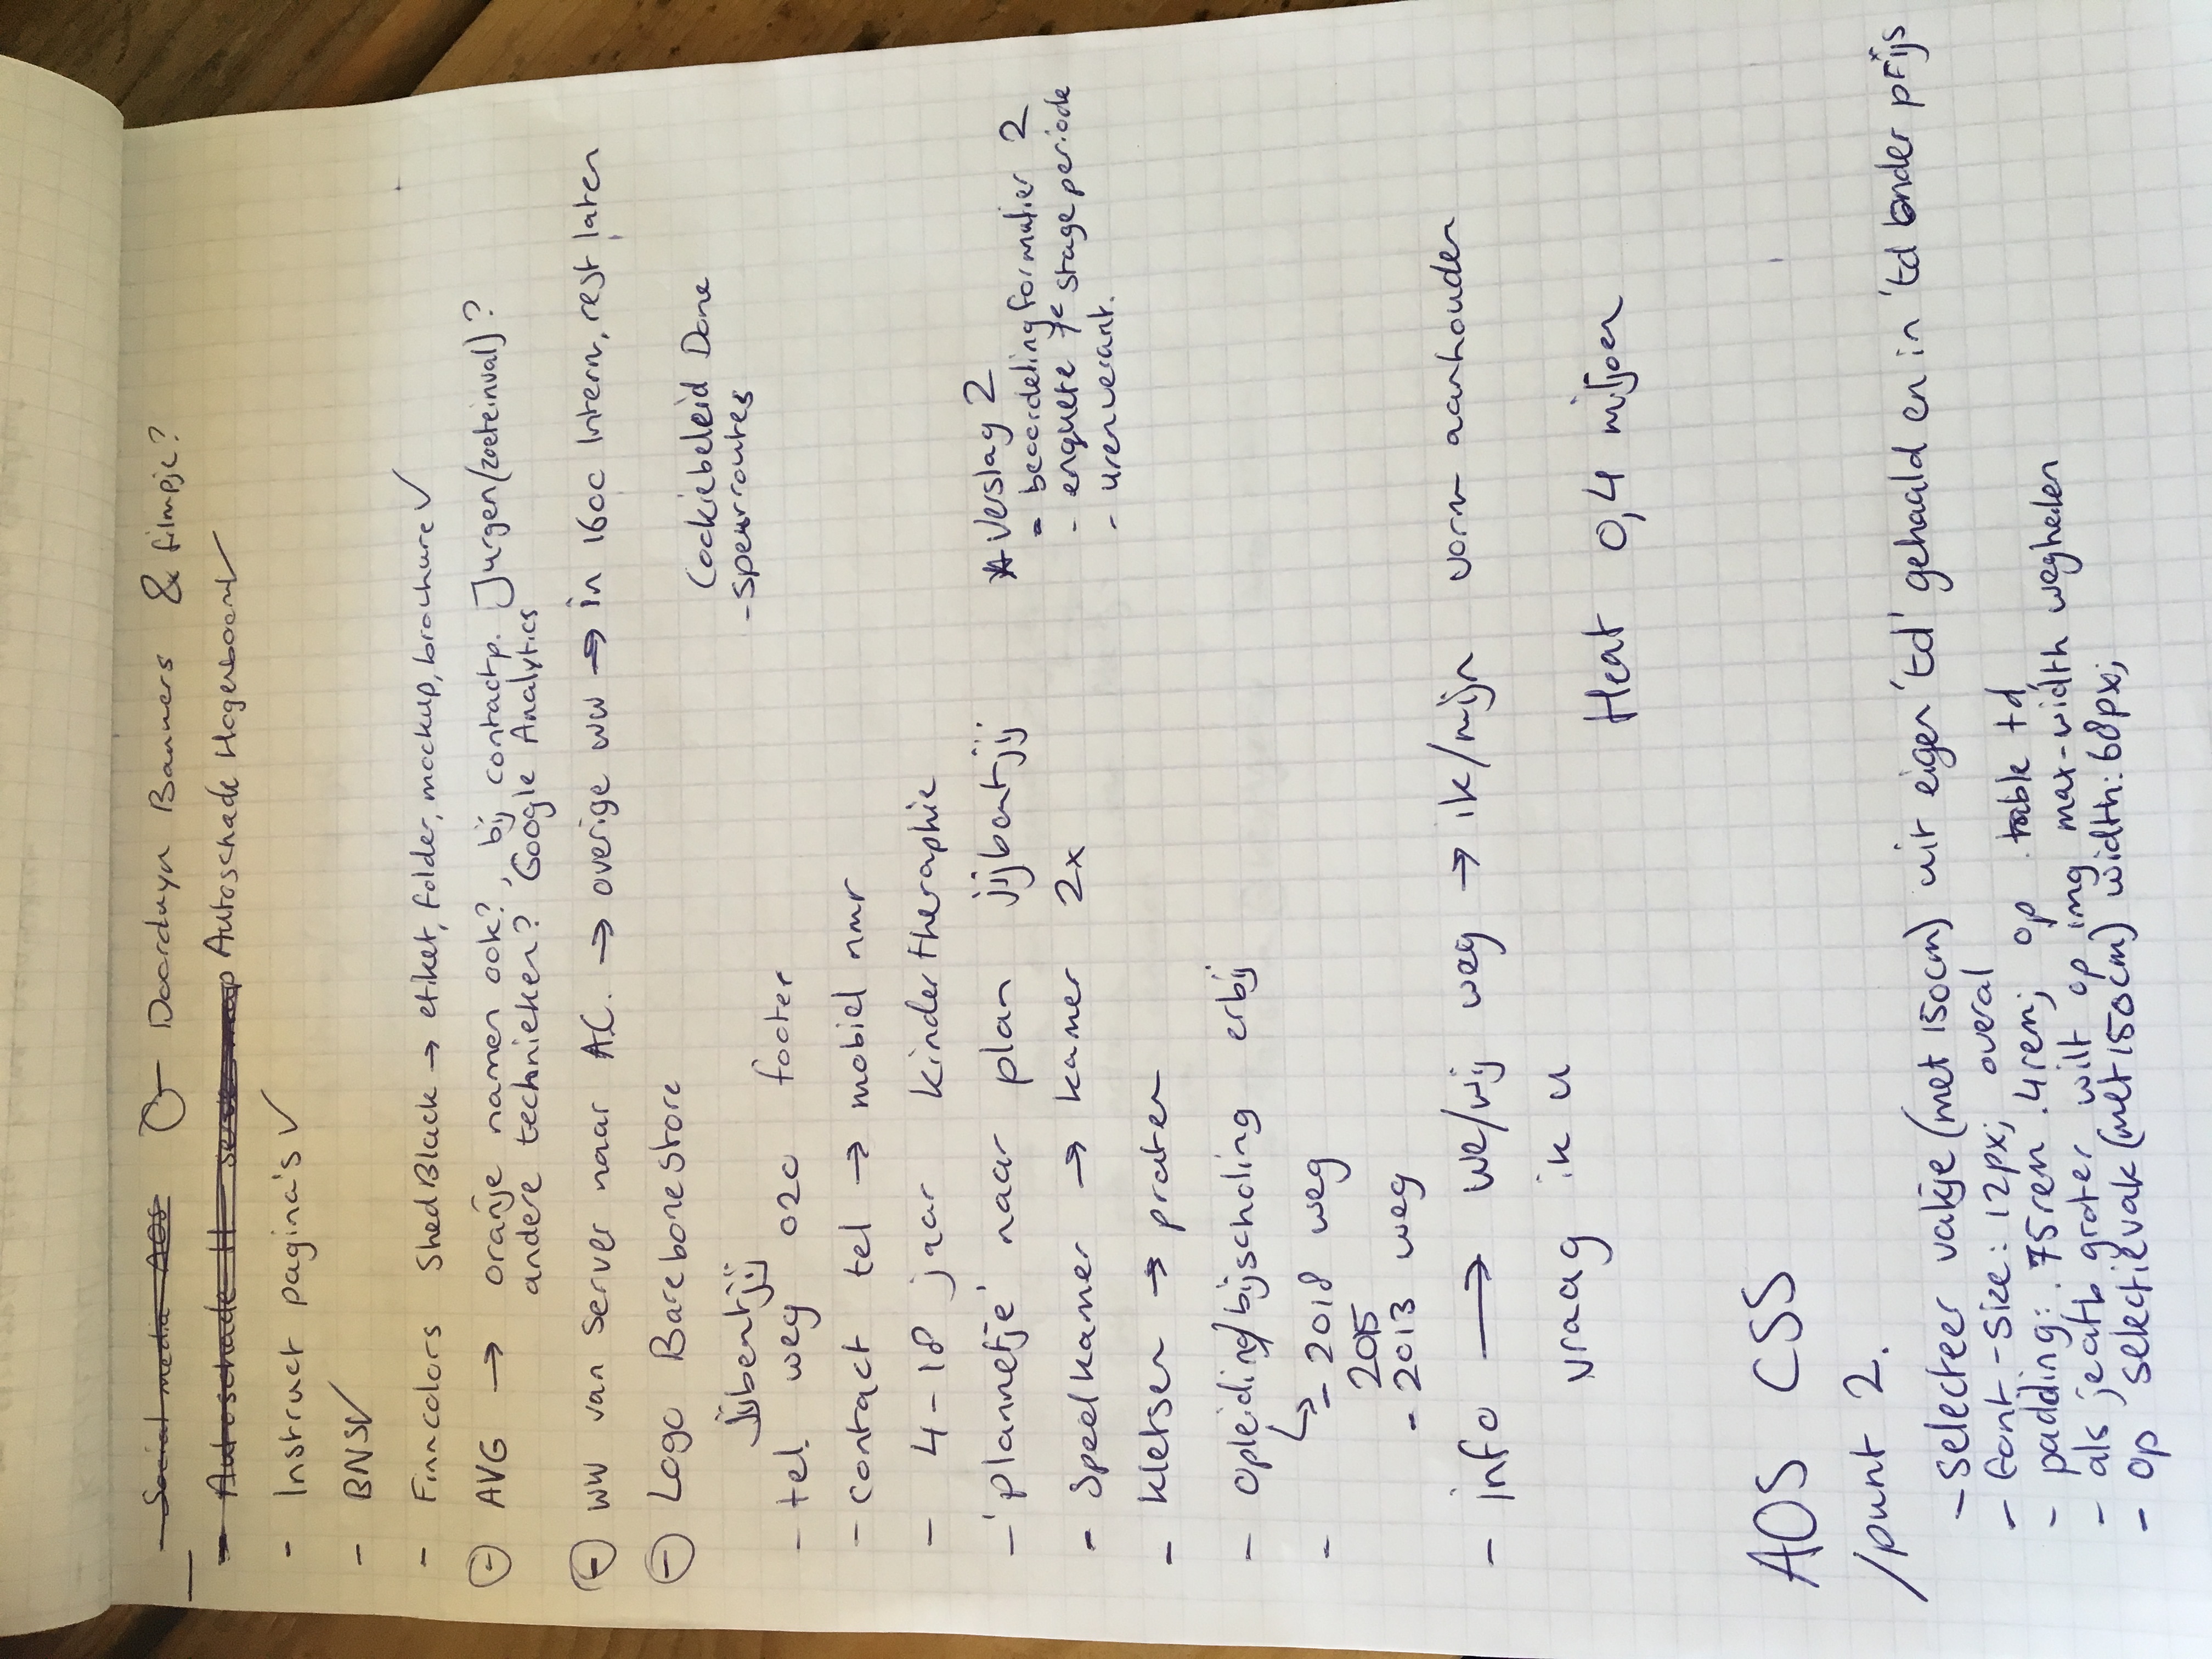 - Social media AOS - Doorduyn Banners & filmpje?
- Autoschade H Autoschade Hogenboom ✓
- Instruct pagina's ✓
- BNS ✓
- Finncolors ShedBlack → etiket, folder, mockup, brochure ✓
- AVG → oranje namen ook?, bij contactp. Jurgen (zoeteinval)?
andere technieken? Google Analytics
- ww van server naar A.C. → overige ww → in 1600 Intern, rest laten
- Logo Barebonestore
Cookiebeleid Done
- speurroutes
Jijbentjij
- tel. weg 020 footer
- contact tel → mobiel nmr
- 4-18 jaar kindertheraphie
- 'plannetje' naar plan jijbentjij
- Speelkamer → kamer 2x
- kletsen → praten
* Verslag 2
- beoordelingformulier 2
- enquete 7e stageperiode
- urenverant.
- opleiding/bijscholing erbij
↳ - 2018 weg
- 2015
- 2013 weg
- info → we/wij weg → ik/mijn vorm aanhouden
vraag ik u
Heat 0,4 miljoen
AOS CSS
/punt 2.
- selecteer vakje (met 150cm) uit eigen 'td' gehaald en in 'td onder prijs
- font-size: 12px; overal
- padding: .75rem .4rem; op .table td
- als je afb groter wilt op img max-width weghalen
- op selectievak (met 150cm) width: 60px;